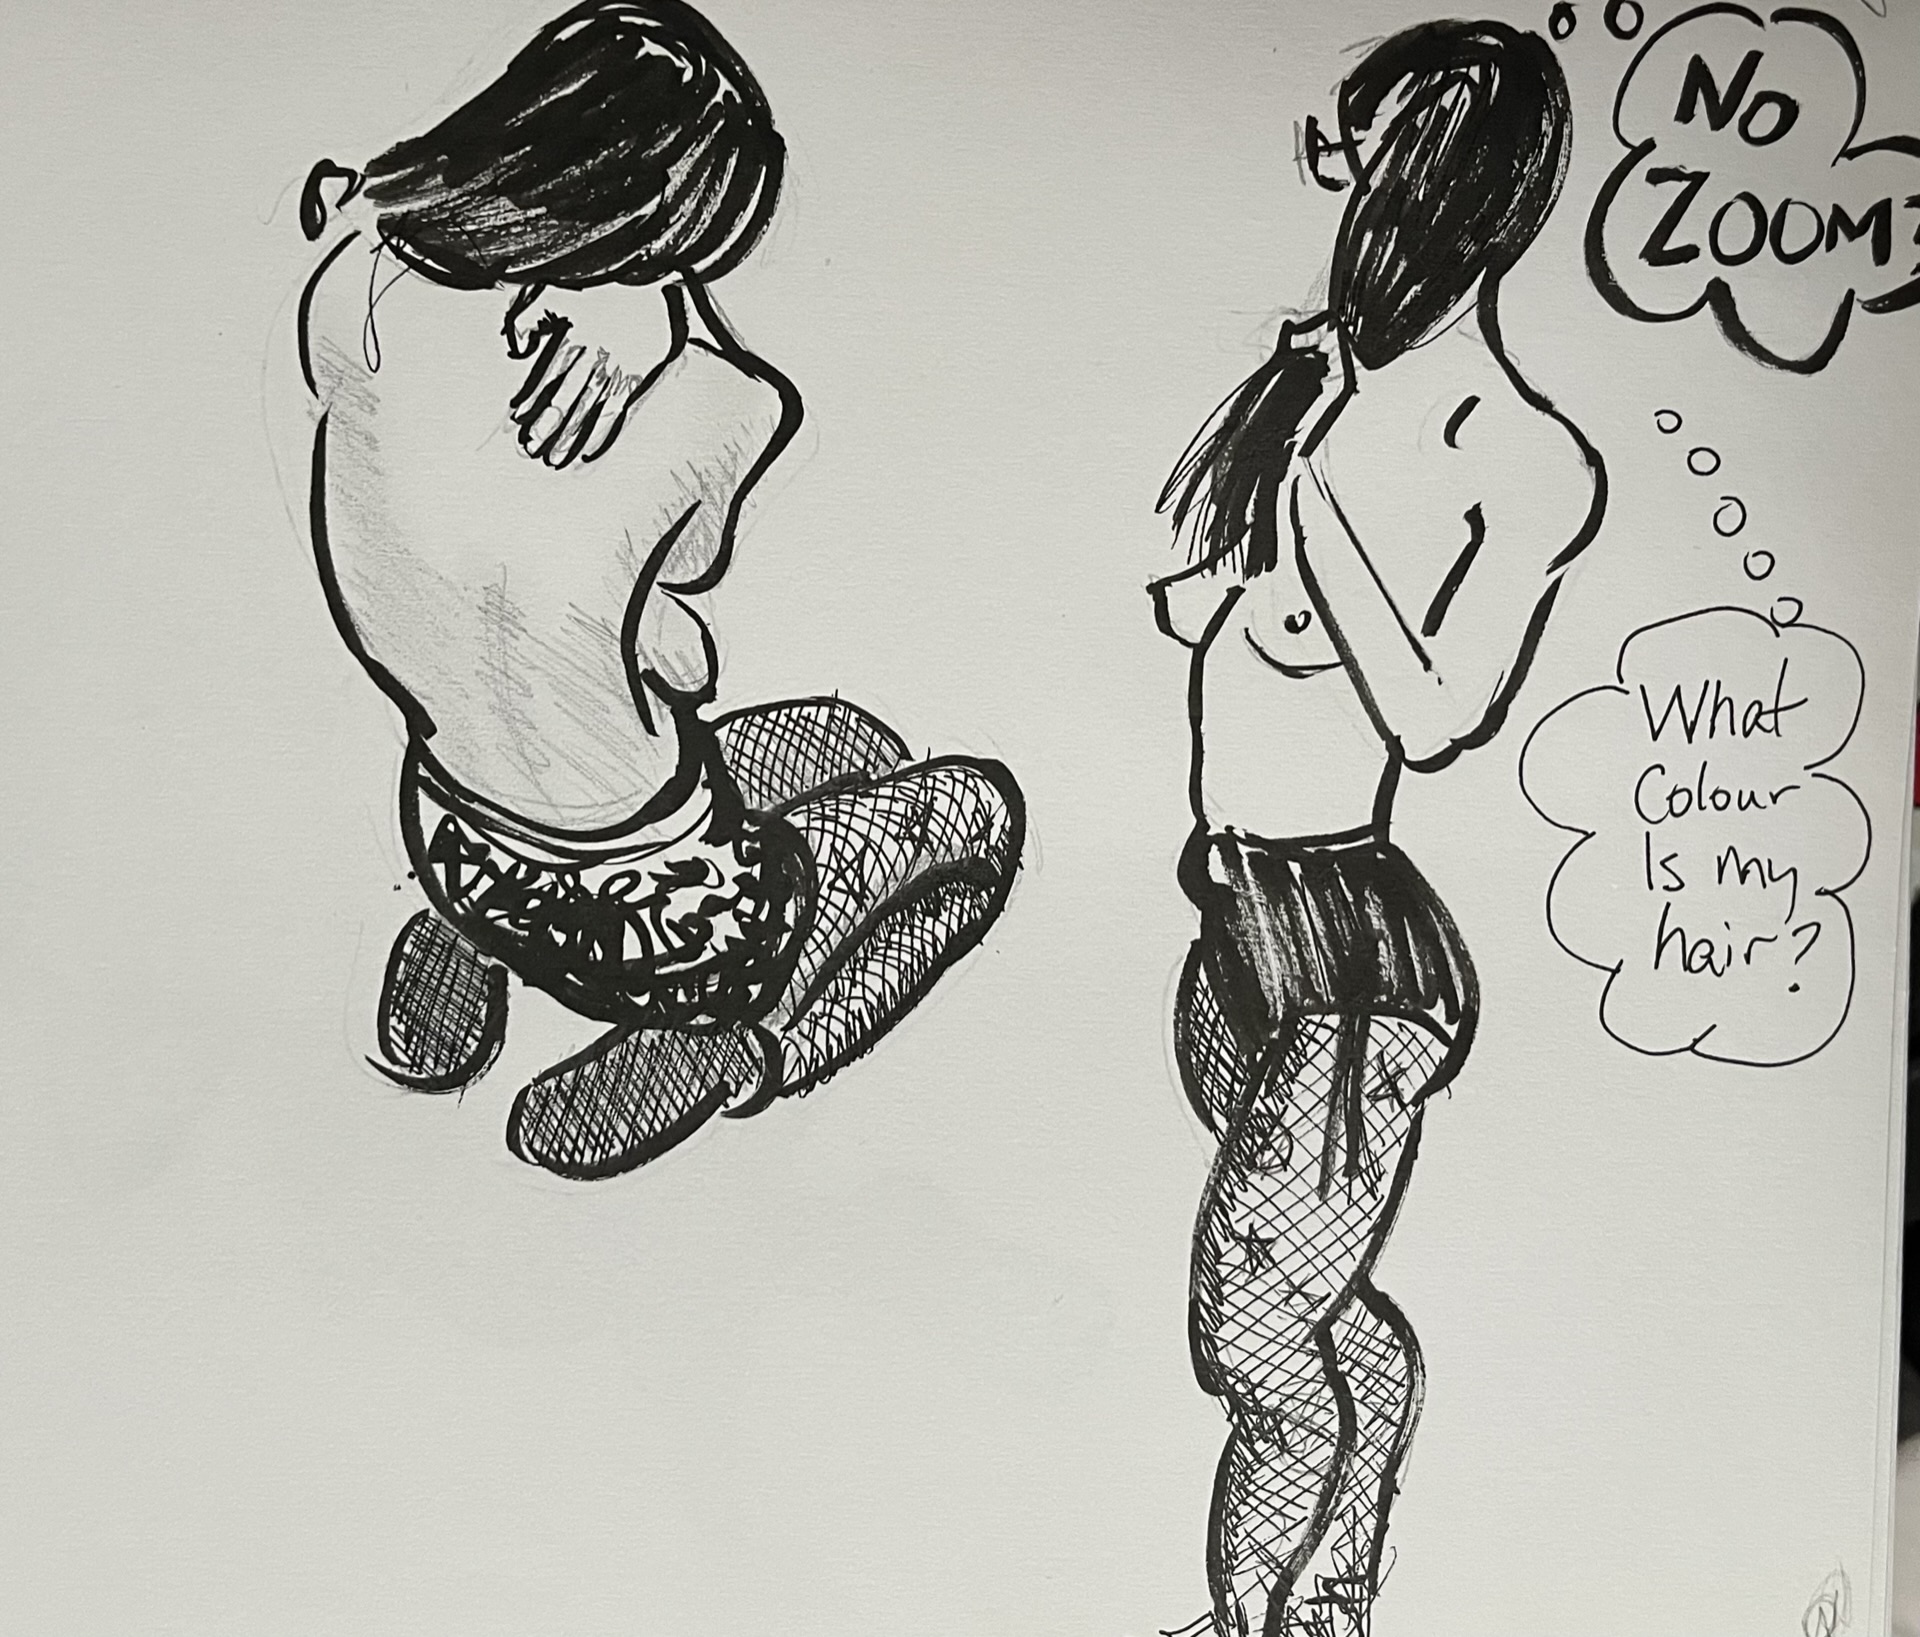 No
ZOOM?
What
Colour
Is my
hair?